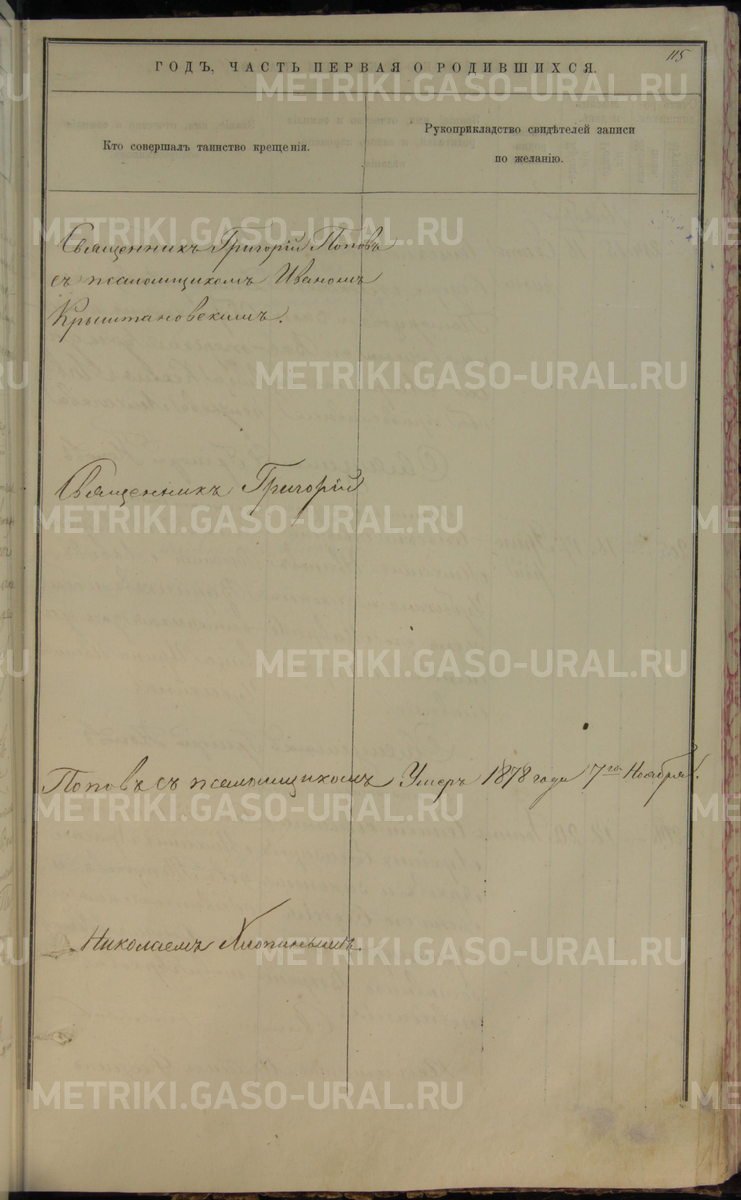 115
ГОДЪ, ЧАСТЬ ПЕРВАЯ О РОДИВШИХСЯ.
Кто совершалъ таинство крещенія.
Рукоприкладство свидѣтелей записи
по желанію.
Священникъ Григорій Поповъ
съ псаломщикомъ Иваномъ
Крыштановскимъ.
Священникъ Григорій
Поповъ съ псаломщикомъ
Умеръ 1878 года 7го Ноября.
Николаемъ Хлопинымъ.
METRIKI.GASO-URAL.RU